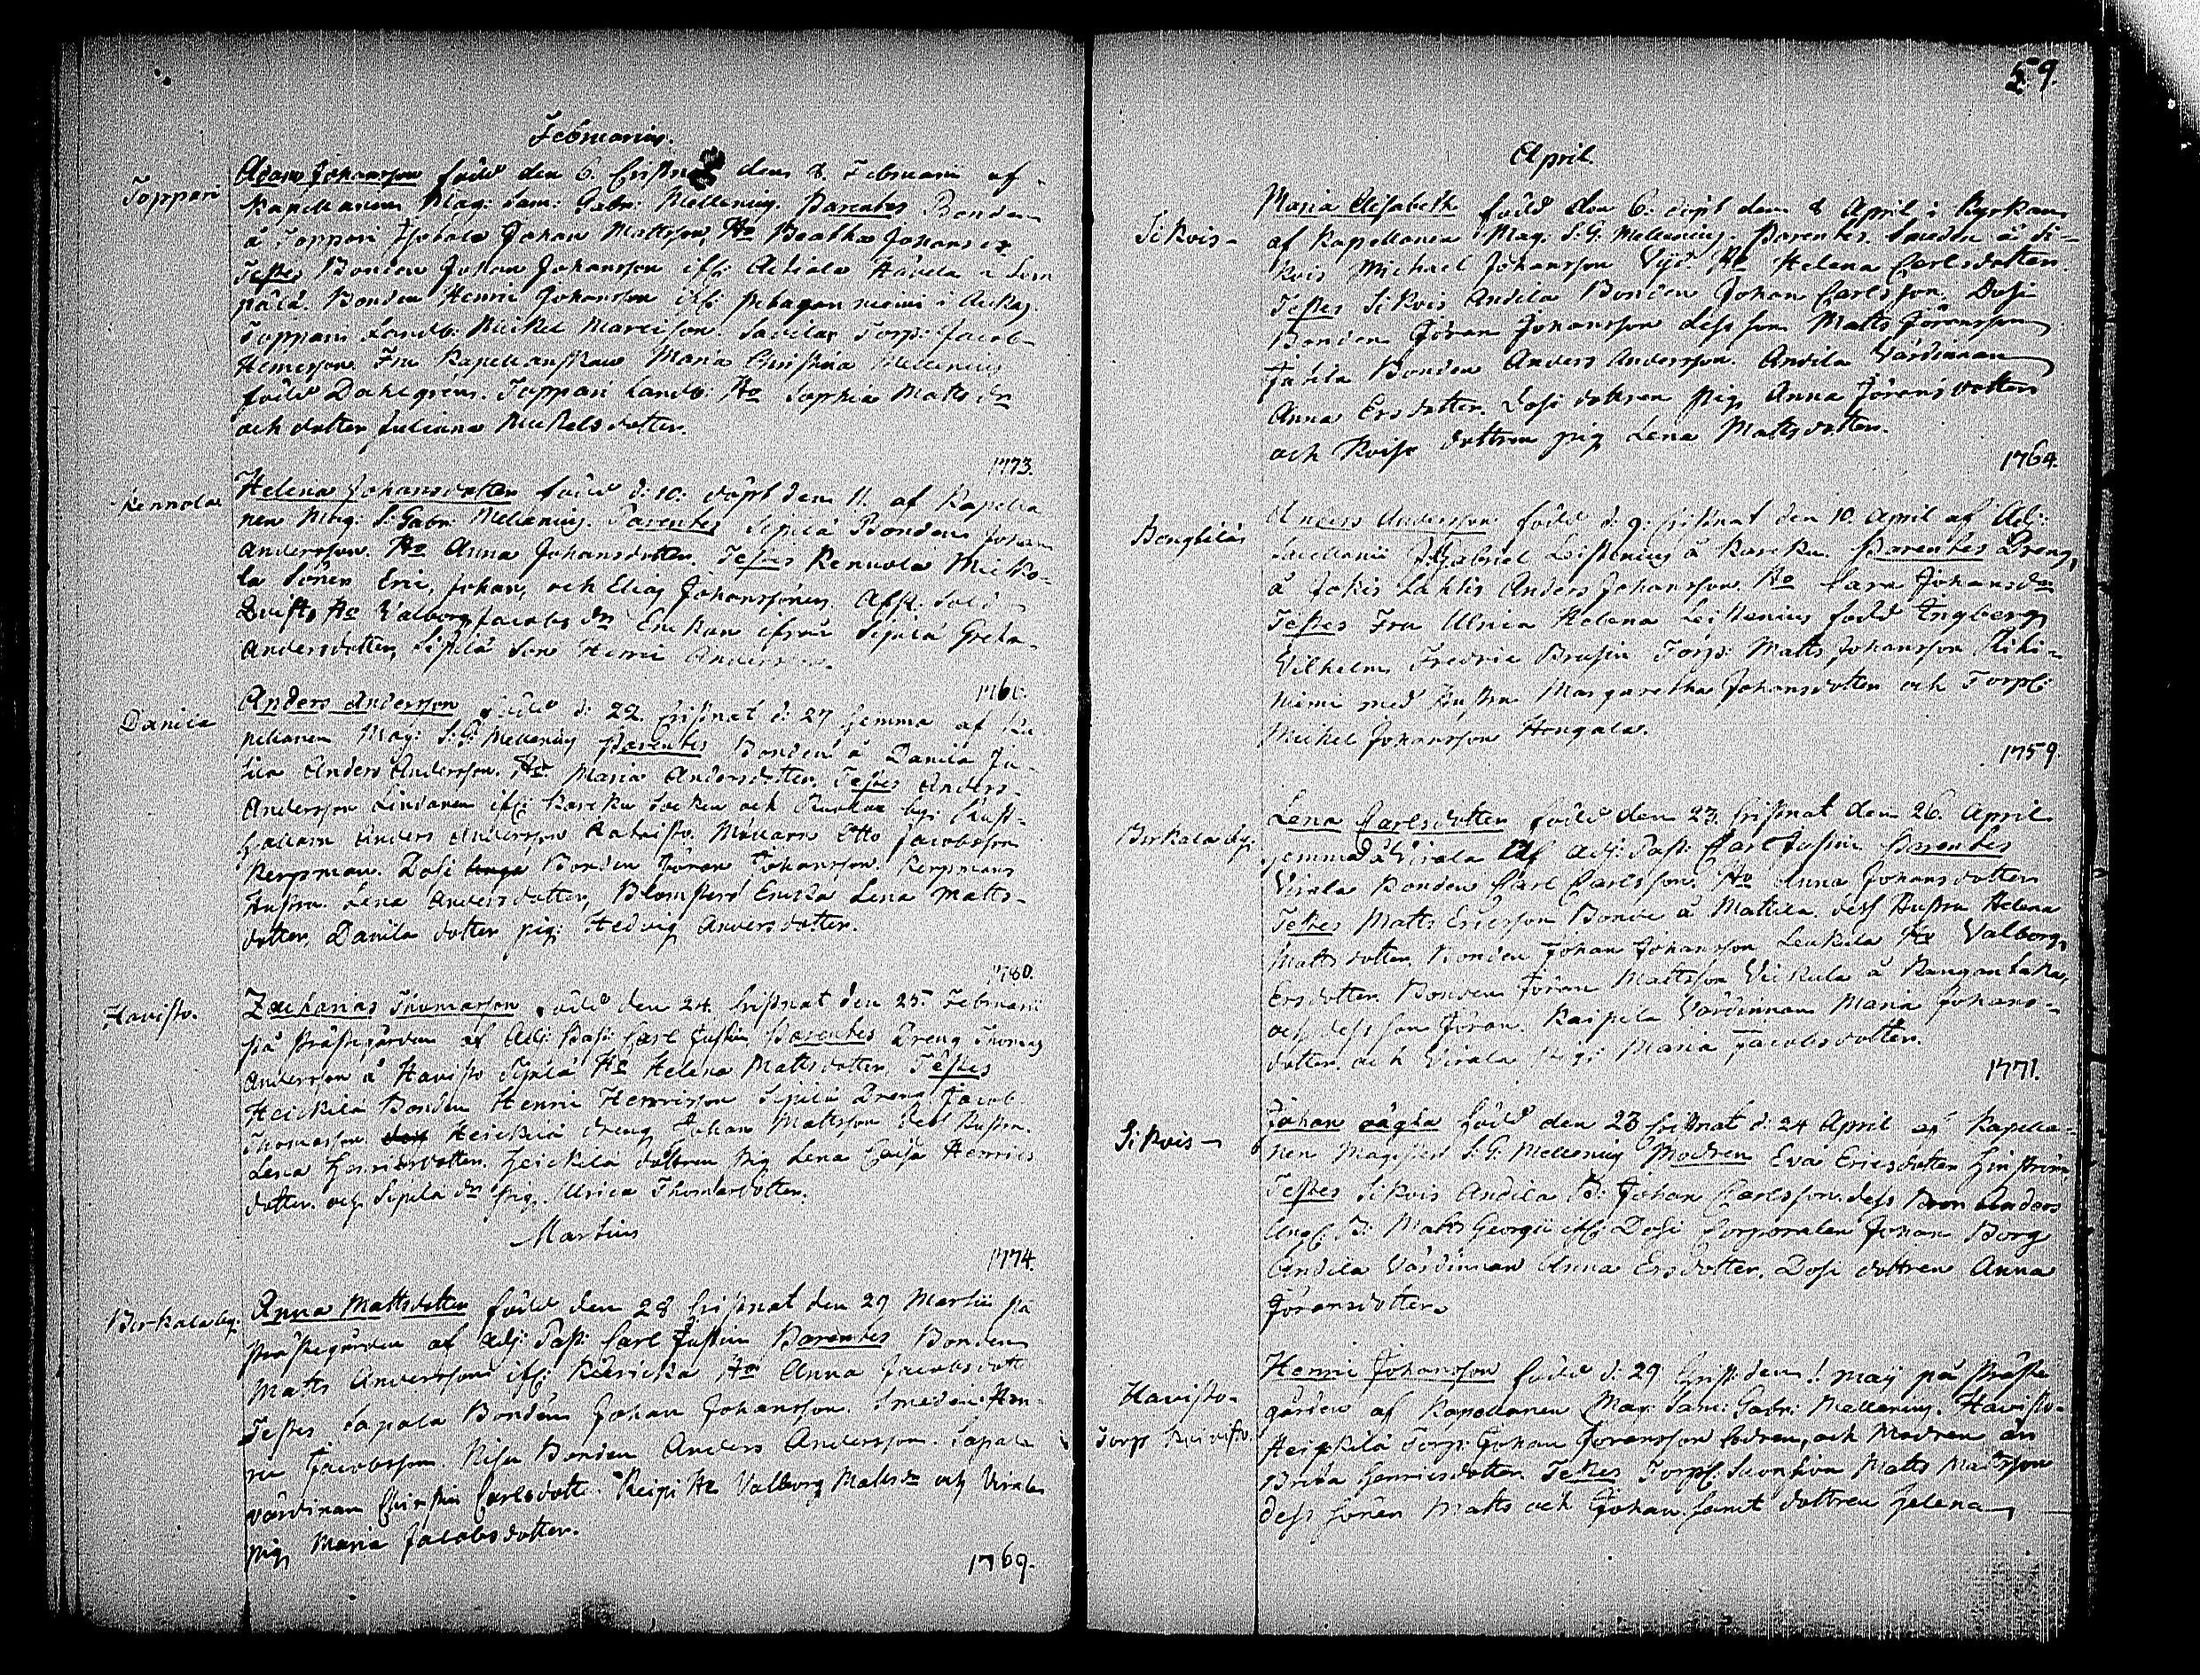 Februarius.
Toppari
Adam Johansson född den 6. Cristnat den 8. Februarii af
Kapellanen Mag: Sam: Gabr: Mellenius. Parentes Bonden
å Toppari Johan Mattsson, Ho Beatha Johansdr
Testes Bonden Johan Johansson ifr: Havela
Bonden Henric Johansson ifr: niemi i
Toppari Landb: Mickel Marcisson. Torp: Jacob
Henricsson. Fru Kapellanskan Maria Christina Mellenius
född Dahlgrens. Toppari Landb: Ho Sophia Matts dr
och dotter Juliana Mickelsdotter.
1773.
Kennola
Helena Johansdotter född d: 10. döpt den 11. af Kapella
nen Mag: S: Gabr: Mellenius. Parentes Sipilä Bonden Johan
Andersson. Ho Anna Johansdotter. Testes Kennola Micko-
la Sönen Eric, Johan, och Elias Johanssöner. Afsk: Sold
Quists Ho Valborg Jacobs dr Enkan ifrån Sipilä Greta
Andersdotter, Sipilä Son Henric Andersson.
1760.
Danila
Anders Andersson född d: 22. Cristnat d: 27 hemma af Ka
pellanen Mag: S: G: Mellenius Parentes Bonden å Danila Ju-
sila Anders Andersson. Ho Maria Andersdotter. Testes Anders
Andersson Lindanen ifr: Karcku Socken och by: Rust-
hållarn Anders Andersson Mölnarn Otto Jacobsson
Kerpman. Dosi Bonden Jöran Johansson. Kerpmans
Hustru Lena Andersdotter, Blomsterö Enka Lena Matts-
dotter, Danila dotter pig: Hedvig Andersdotter.
1780.
Havisto.
Zacharias Thomasson född den 24. Cristnat den 25. Februarii
på Prästegården af Adj: Past: Carl Justin Parentes Dreng Thomas
Andersson å Havisto Sipilä Ho Helena Mattsdotter. Testes
Heickilä Bonden Henric Henricsson Sipilä Dreng Jacob
Thomasson. Heickilä dreng Johan Mattsson dess Hustru
Lena Henricsdotter. Heickilä dottren pig Lena Caisa Henrics
dotter. och Sipilä dr pig. Ulrica Thomasdotter.
Martius
1774.
Birkala by.
Anna Mattsdotter född den 28 Cristnat den 29 Martii på
Prästegården af Adj: Past: Carl Justin Parentes Bonden
Matts Andersson ifr: Ho Anna Jacobsdott
Testes Sapala Bonden Johan Johansson. Smeden Hen-
ric Jacobsson. Nisu Bonden Anders Andersson. Sapala
värdinnan Christin Carlsdotter. Reipi Ho Valborg Mattsdr och Virala
pig Maria Jacobsdotter.
1769.
59.
April.
Sikvis-
Maria Elisabeth född den 6. döpt den 8 April i Kyrkan
af Kapellanen Mag: S: G: Mellenius. Parentes. Smeden å Si-
kvis Michael Johansson Vyd. Ho Helena Carlsdotter.
Testes Sikvis Andila Bonden Johan Carlsson. Dosi
Bonden Jöran Johansson dess son Matts Jöransson
Jutila Bonden Anders Andersson. Andila Värdinnan
Anna Ersdotter. Dosi dottren pig. Anna Jöransdotter
och dottren pig Lena Mattsdotter.
1764.
Bengtilä
Anders Andersson född d: 9. Cristnat den 10. April af Adj:
Sacellanii Gabriel Leistenius å Karcku. Parentes Dreng
å Jokis Lahtis Anders Johansson. Ho Sara Johansdr
Testes Fru Ulrica Helena Leistenius född Engberg
Vilhelm Fredric Brusiin Torp: Matts Johansson
niemi med Hustru Margaretha Johansdotter och Torp:
Mickel Johansson Hongala.
1759.
Birkala by.
Lena Carlsdotter född den 23. Cristnat den 26. April
hemma å Virala Af Adj: Past: Carl Justin Parentes
Virala Bonden Carl Carlsson. Ho Anna Johansdotter
Testes Matts Ericsson Bonde å Mattila. dess Hustru Helena
Mattsdotter. Bonden Johan Johansson Leukila Ho Valborg
Ersdotter Bonden Jöran Mattsson å Kangan taka,
och dess son Jöran. Kaipila Värdinnan Maria Johans-
dotter. och Virala Pig: Maria Jacobsdotter.
1771.
Sikvis-
Johan oägta född den 23 Cristnat d: 24 April af Kapella-
nen Magister S: G: Mellenius Modren Eva Ericsdotter Hinström
Testes Sikvis Andila B: Johan Carlsson dess Bror Anders
Matts Georgii ifr: Dosi Corporalen Johan Borg
Andila Värdinnan Anna Ersdotter. Dosi dottren Anna
Jöransdotter.
Havisto-
Torp
Henric Johansson född d: 29 Crist: den 1 maij på Präste
gården af Kapellanen Mag: Sam: Gabr: Mellenius. Havisto-
Heickilä Torp: Johan Jöransson fadren, och Modren är
Brita Henricsdotter. Testes Torp: Matts Mattsson
dess söner Matts och Johan samt dottren Helena